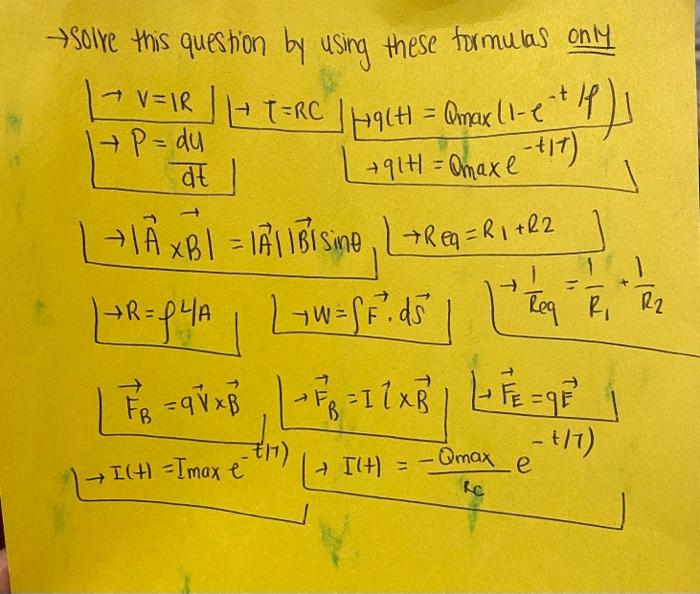 → Solve this question by using these formulas only
→ V=IR
→ τ=RC
→ q(t) = Qmax (1-e^-t/τ)
→ P = du/dt
→ q(t) = Qmax e^-t/τ)
→ |A⃗ xB⃗| = |A⃗| |B⃗| sinθ
→ Req = R1 + R2
→ R = ρ L/A
→ W = ∫F⃗. ds⃗
→ 1/Req = 1/R1 + 1/R2
F⃗B = qV⃗xB⃗
→ F⃗B = I l⃗ xB⃗
→ F⃗E = qE⃗
→ I(t) = Imax e^-t/τ)
→ I(t) = -Qmax/RC e^-t/τ)